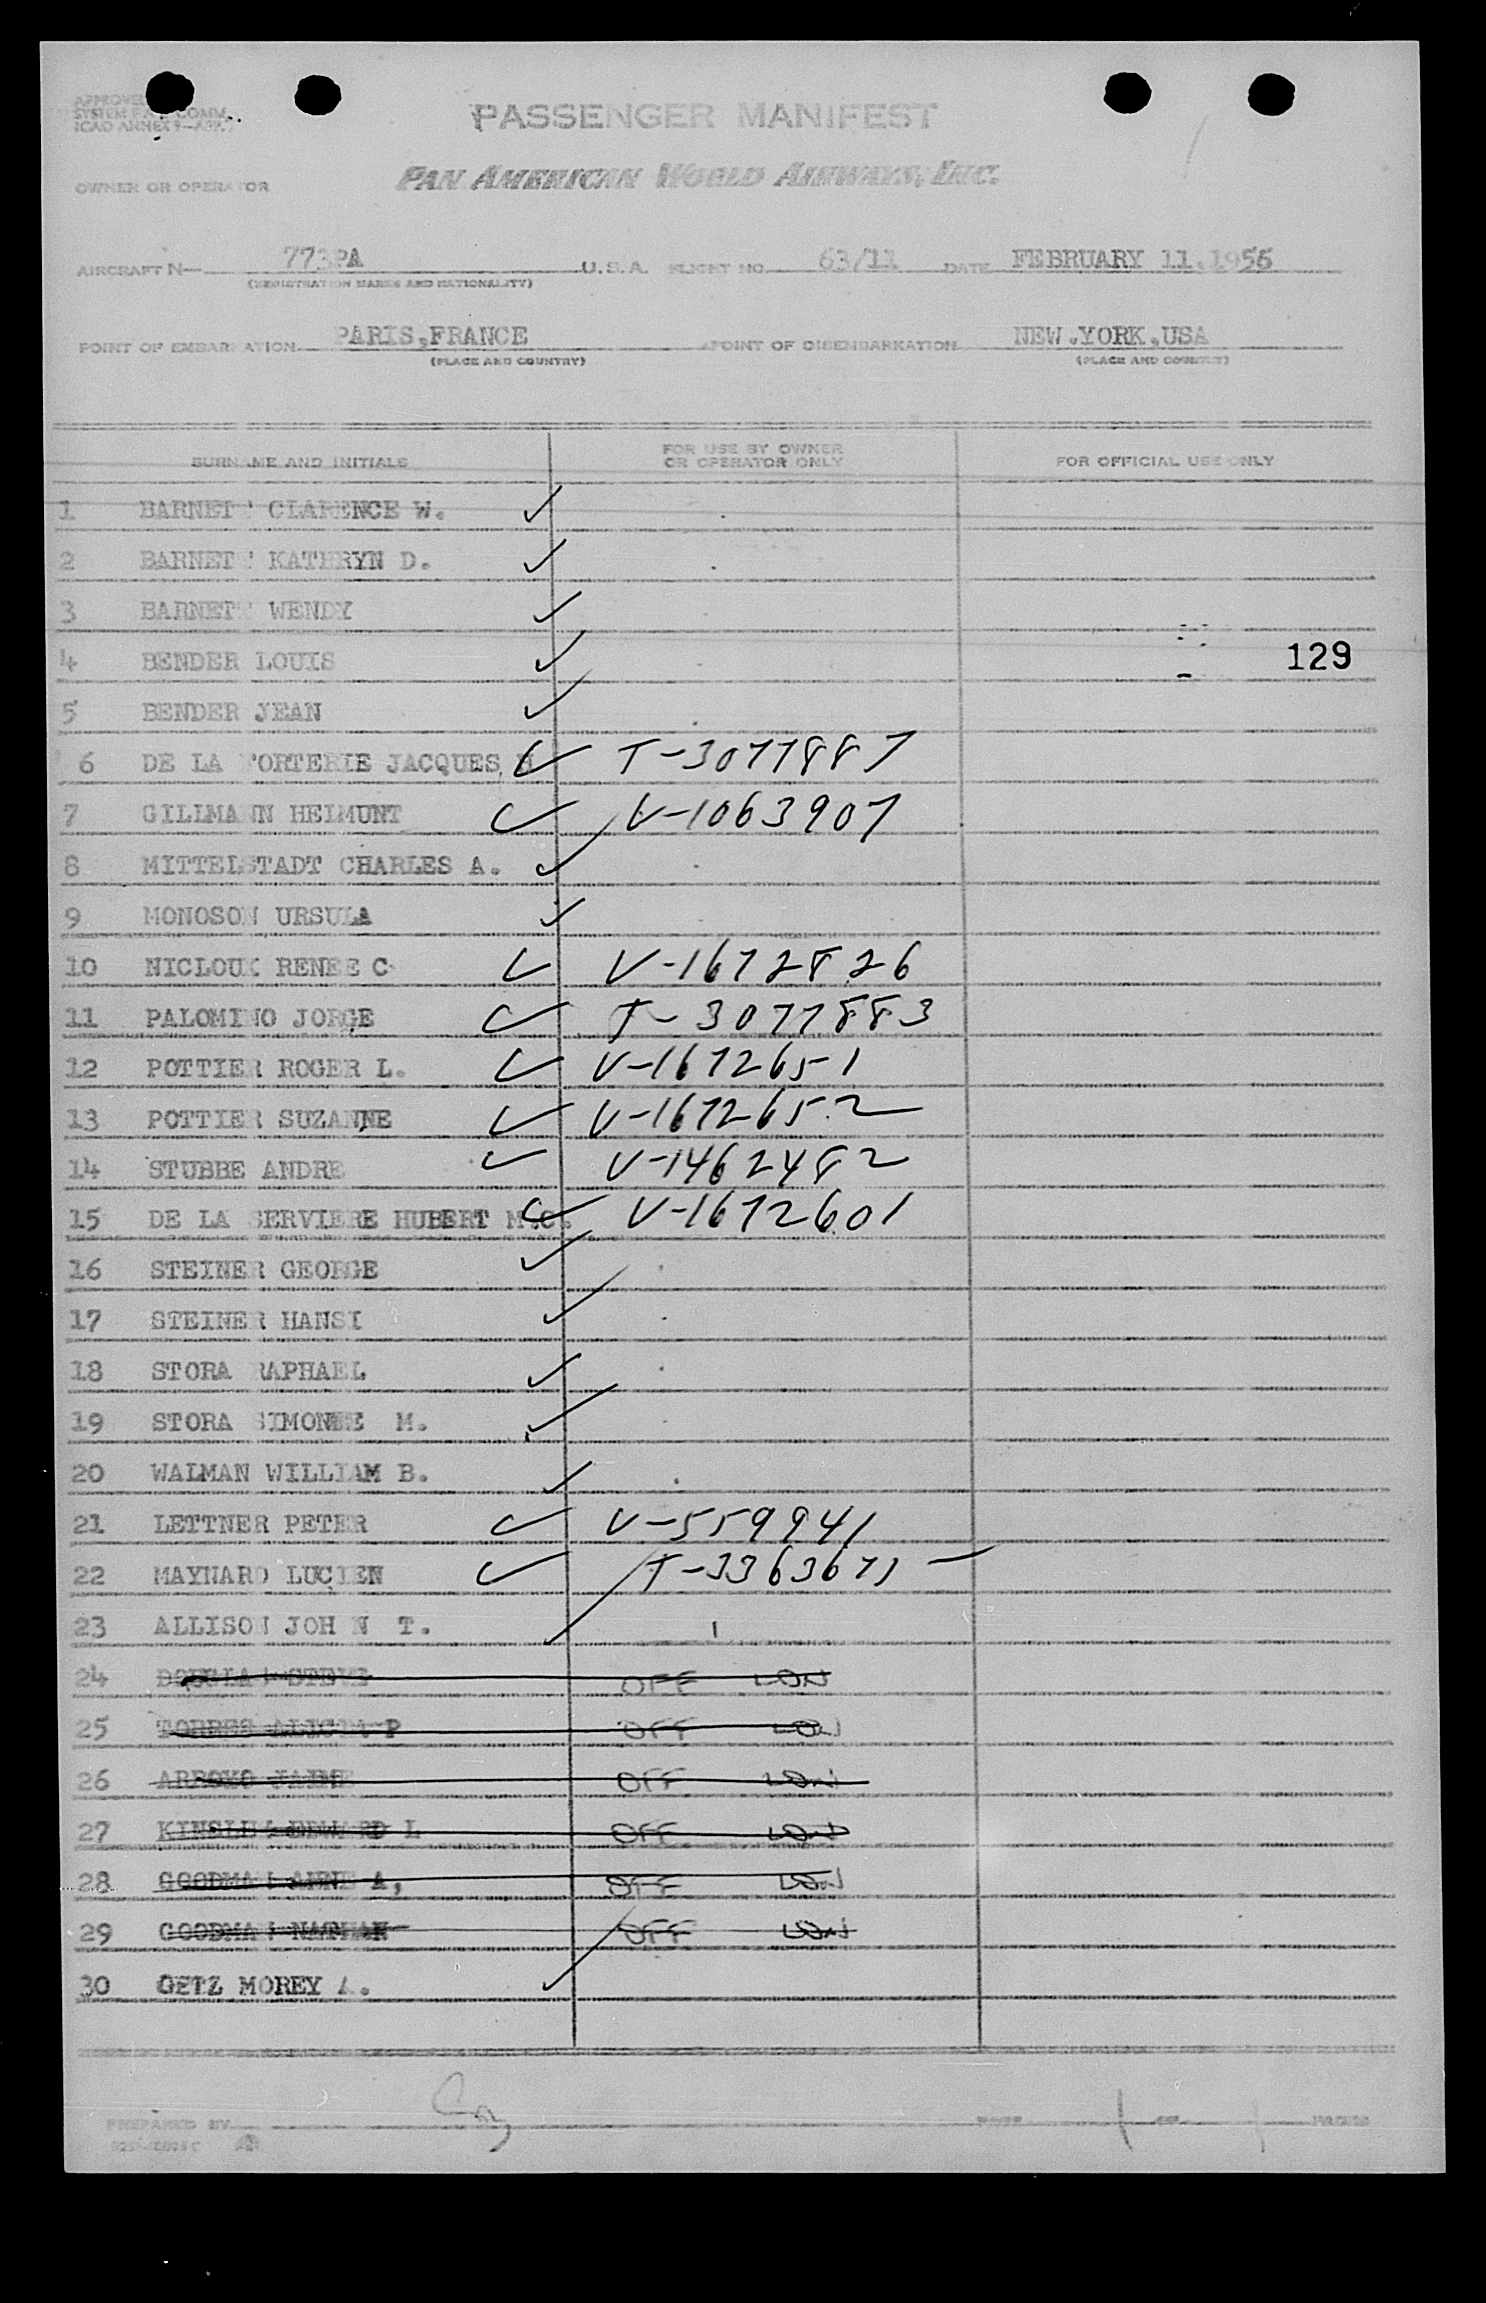 APPROVED
SYSTEM F.A.L. COMM.
ICAO ANNEX 9—APP.
PASSENGER MANIFEST
OWNER OR OPERATOR PAN AMERICAN WORLD AIRWAYS, INC.
AIRCRAFT N— 773PA U.S.A. FLIGHT NO. 63/11 DATE FEBRUARY 11,1956
(REGISTRATION MARKS AND NATIONALITY)
POINT OF EMBARKATION PARIS,FRANCE POINT OF DISEMBARKATION NEW.YORK,USA
(PLACE AND COUNTRY) (PLACE AND COUNTRY)
SURNAME AND INITIALS FOR USE BY OWNER OR OPERATOR ONLY FOR OFFICIAL USE ONLY
1 BARNETT CLARENCE W. ✓
2 BARNETT KATHRYN D. ✓
3 BARNETT WENDY ✓
4 BENDER LOUIS ✓ 129
5 BENDER JEAN ✓
6 DE LA FORTERIE JACQUES H ✓ T-3077887
7 GILLMANN HEIMUNT ✓ V-1063907
8 MITTELSTADT CHARLES A. ✓
9 MONOSON URSULA ✓
10 NICLOUX RENEE C ✓ V-1672826
11 PALOMINO JORGE ✓ T-3077883
12 POTTIER ROGER L. ✓ V-1672651
13 POTTIER SUZANNE ✓ V-1672652
14 STUBBE ANDRE ✓ V-1462482
15 DE LA SERVIERE HUBERT M.C. ✓ V-1672601
16 STEINER GEORGE ✓
17 STEINER HANSI ✓
18 STORA RAPHAEL ✓
19 STORA SIMONEE M. ✓
20 WALMAN WILLIAM B. ✓
21 LETTNER PETER ✓ V-559941
22 MAYNARD LUCIEN ✓ T-3363671
23 ALLISON JOH N T. ✓
24 DOUGLAS STEVE OFF LON
25 TORRES ALICIA P OFF LON
26 ARROYO JAIME OFF LON
27 EDWARD L OFF LON
28 GOODMAN ANNE A, OFF LON
29 GOODMAN NATHAN OFF LON
30 GETZ MOREY A. ✓
PREPARED BY PAGE 1 OF 1 PAGES